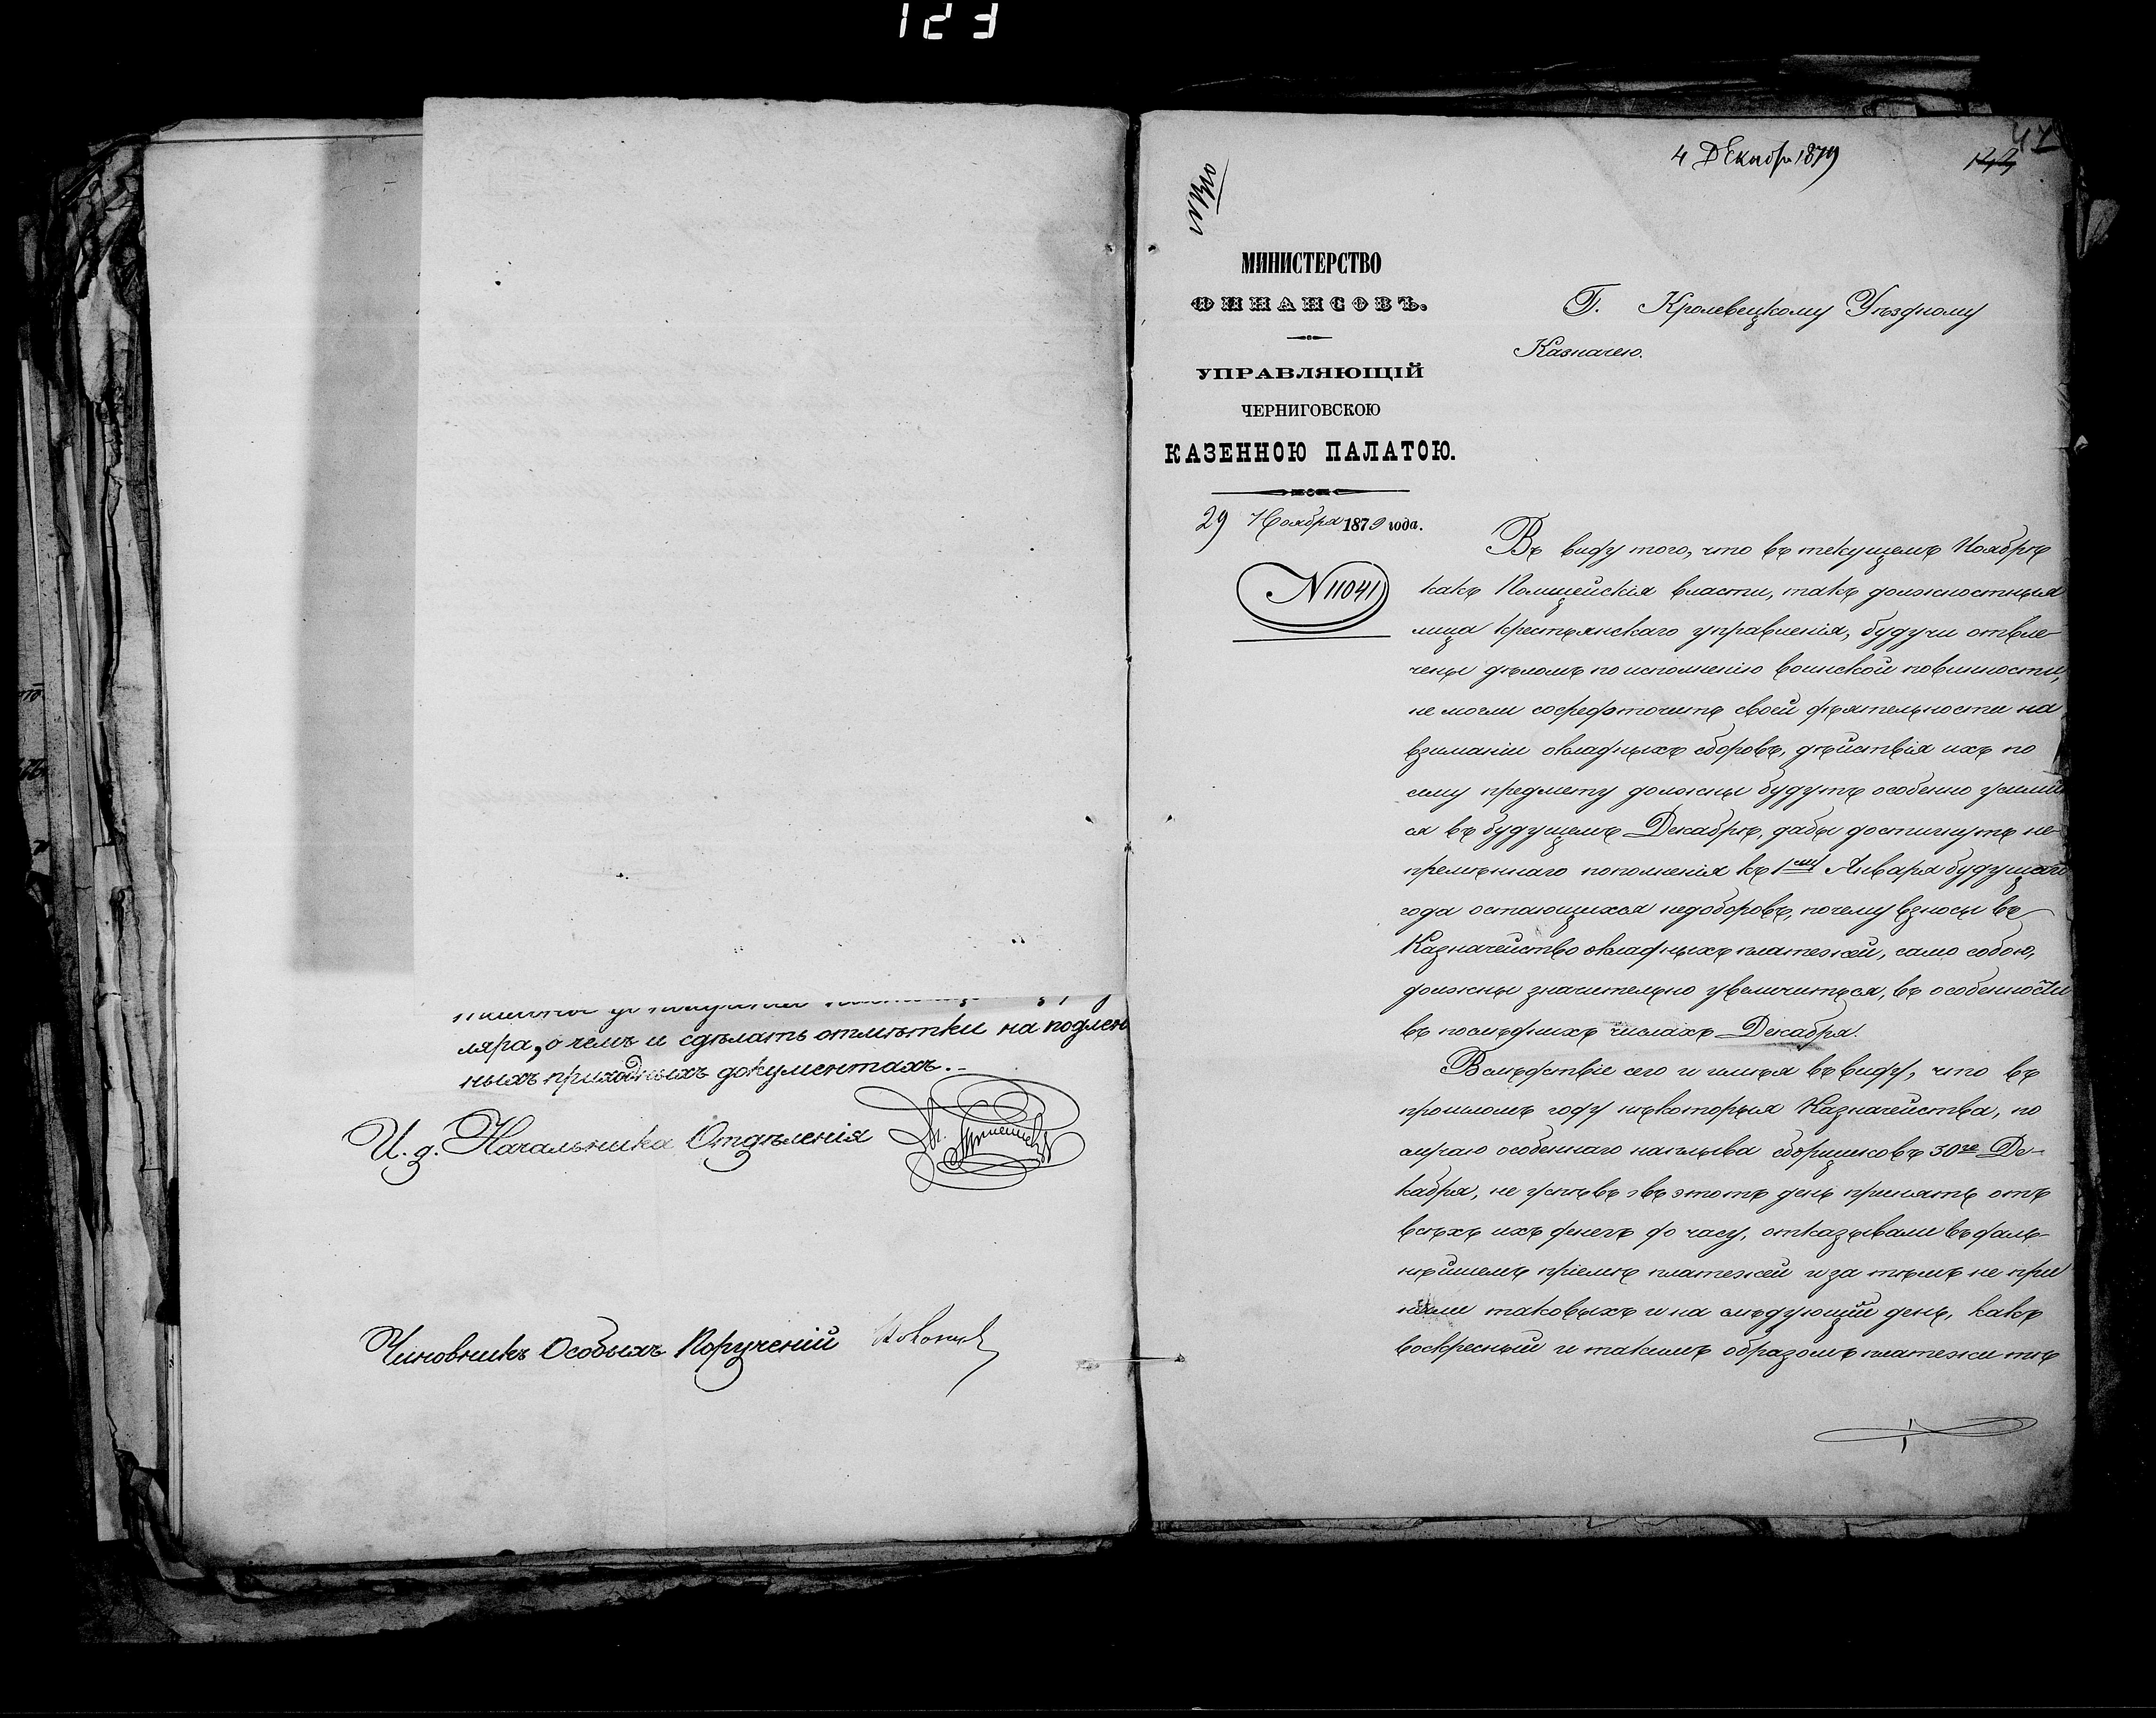 123
ляра, о чемъ и сдѣлать отмѣтки на подлен
ныхъ приходныхъ документахъ.-
И. д. Начальника Отдѣленія
Чиновникъ Особыхъ Порученій
4 Декабр 1879
47
МИНИСТЕРСТВО
ФИНАНСОВЪ.
УПРАВЛЯЮЩІЙ
ЧЕРНИГОВСКОЮ
КАЗЕННОЮ ПАЛАТОЮ.
29 Ноября 1879 года.
N 11041
Г. Кролевецкому Уѣздному
Казначею.
Въ виду того, что въ текущемъ Ноябрѣ
какъ Полицейскія власти, такъ должностныя
лица крестьянскаго управленія, будучи отвле-
чены дѣломъ по исполнению воинской повинности,
не могли сосредоточить своей дѣятельности на
взиманіи окладныхъ сборовъ, дѣйствія ихъ по
сему предмету должны будутъ особенно усилит
ся въ будущемъ Декабрѣ, дабы достигнуть не-
премѣннаго пополненія къ 1му Января будущаго
года остающихся недоборовъ, почему взносы въ
Казначейство окладныхъ платежей, само собою,
должны значительно увеличиться, въ особенности
въ послѣднихъ числахъ Декабря.
Вслѣдствіе сего и имѣя въ виду, что въ
прошломъ году нѣкоторыя Казначейства, по
случаю особеннаго наплыва сборщиковъ 30го Де-
кабря, не успѣвъ въ этотъ день принять отъ
всѣхъ ихъ денегъ до часу, отказывали въ даль-
нѣйшемъ пріемѣ платежей и за тѣмъ не при
няли таковыхъ и на слѣдующій день, какъ
воскресный и такимъ образомъ платежи тѣ